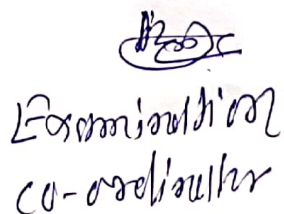 Examination
co-ordinator